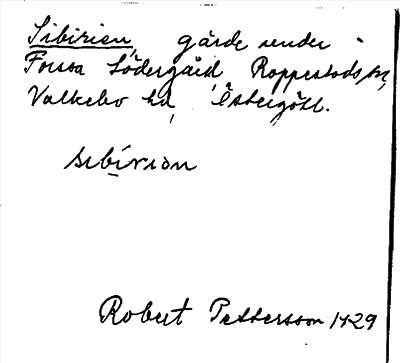 Sibirien, gärde under
Forssa Södergård, Rappestads sn,
Valkebo hd, Östergötl.
sibirion
Robert Pettersson 1929